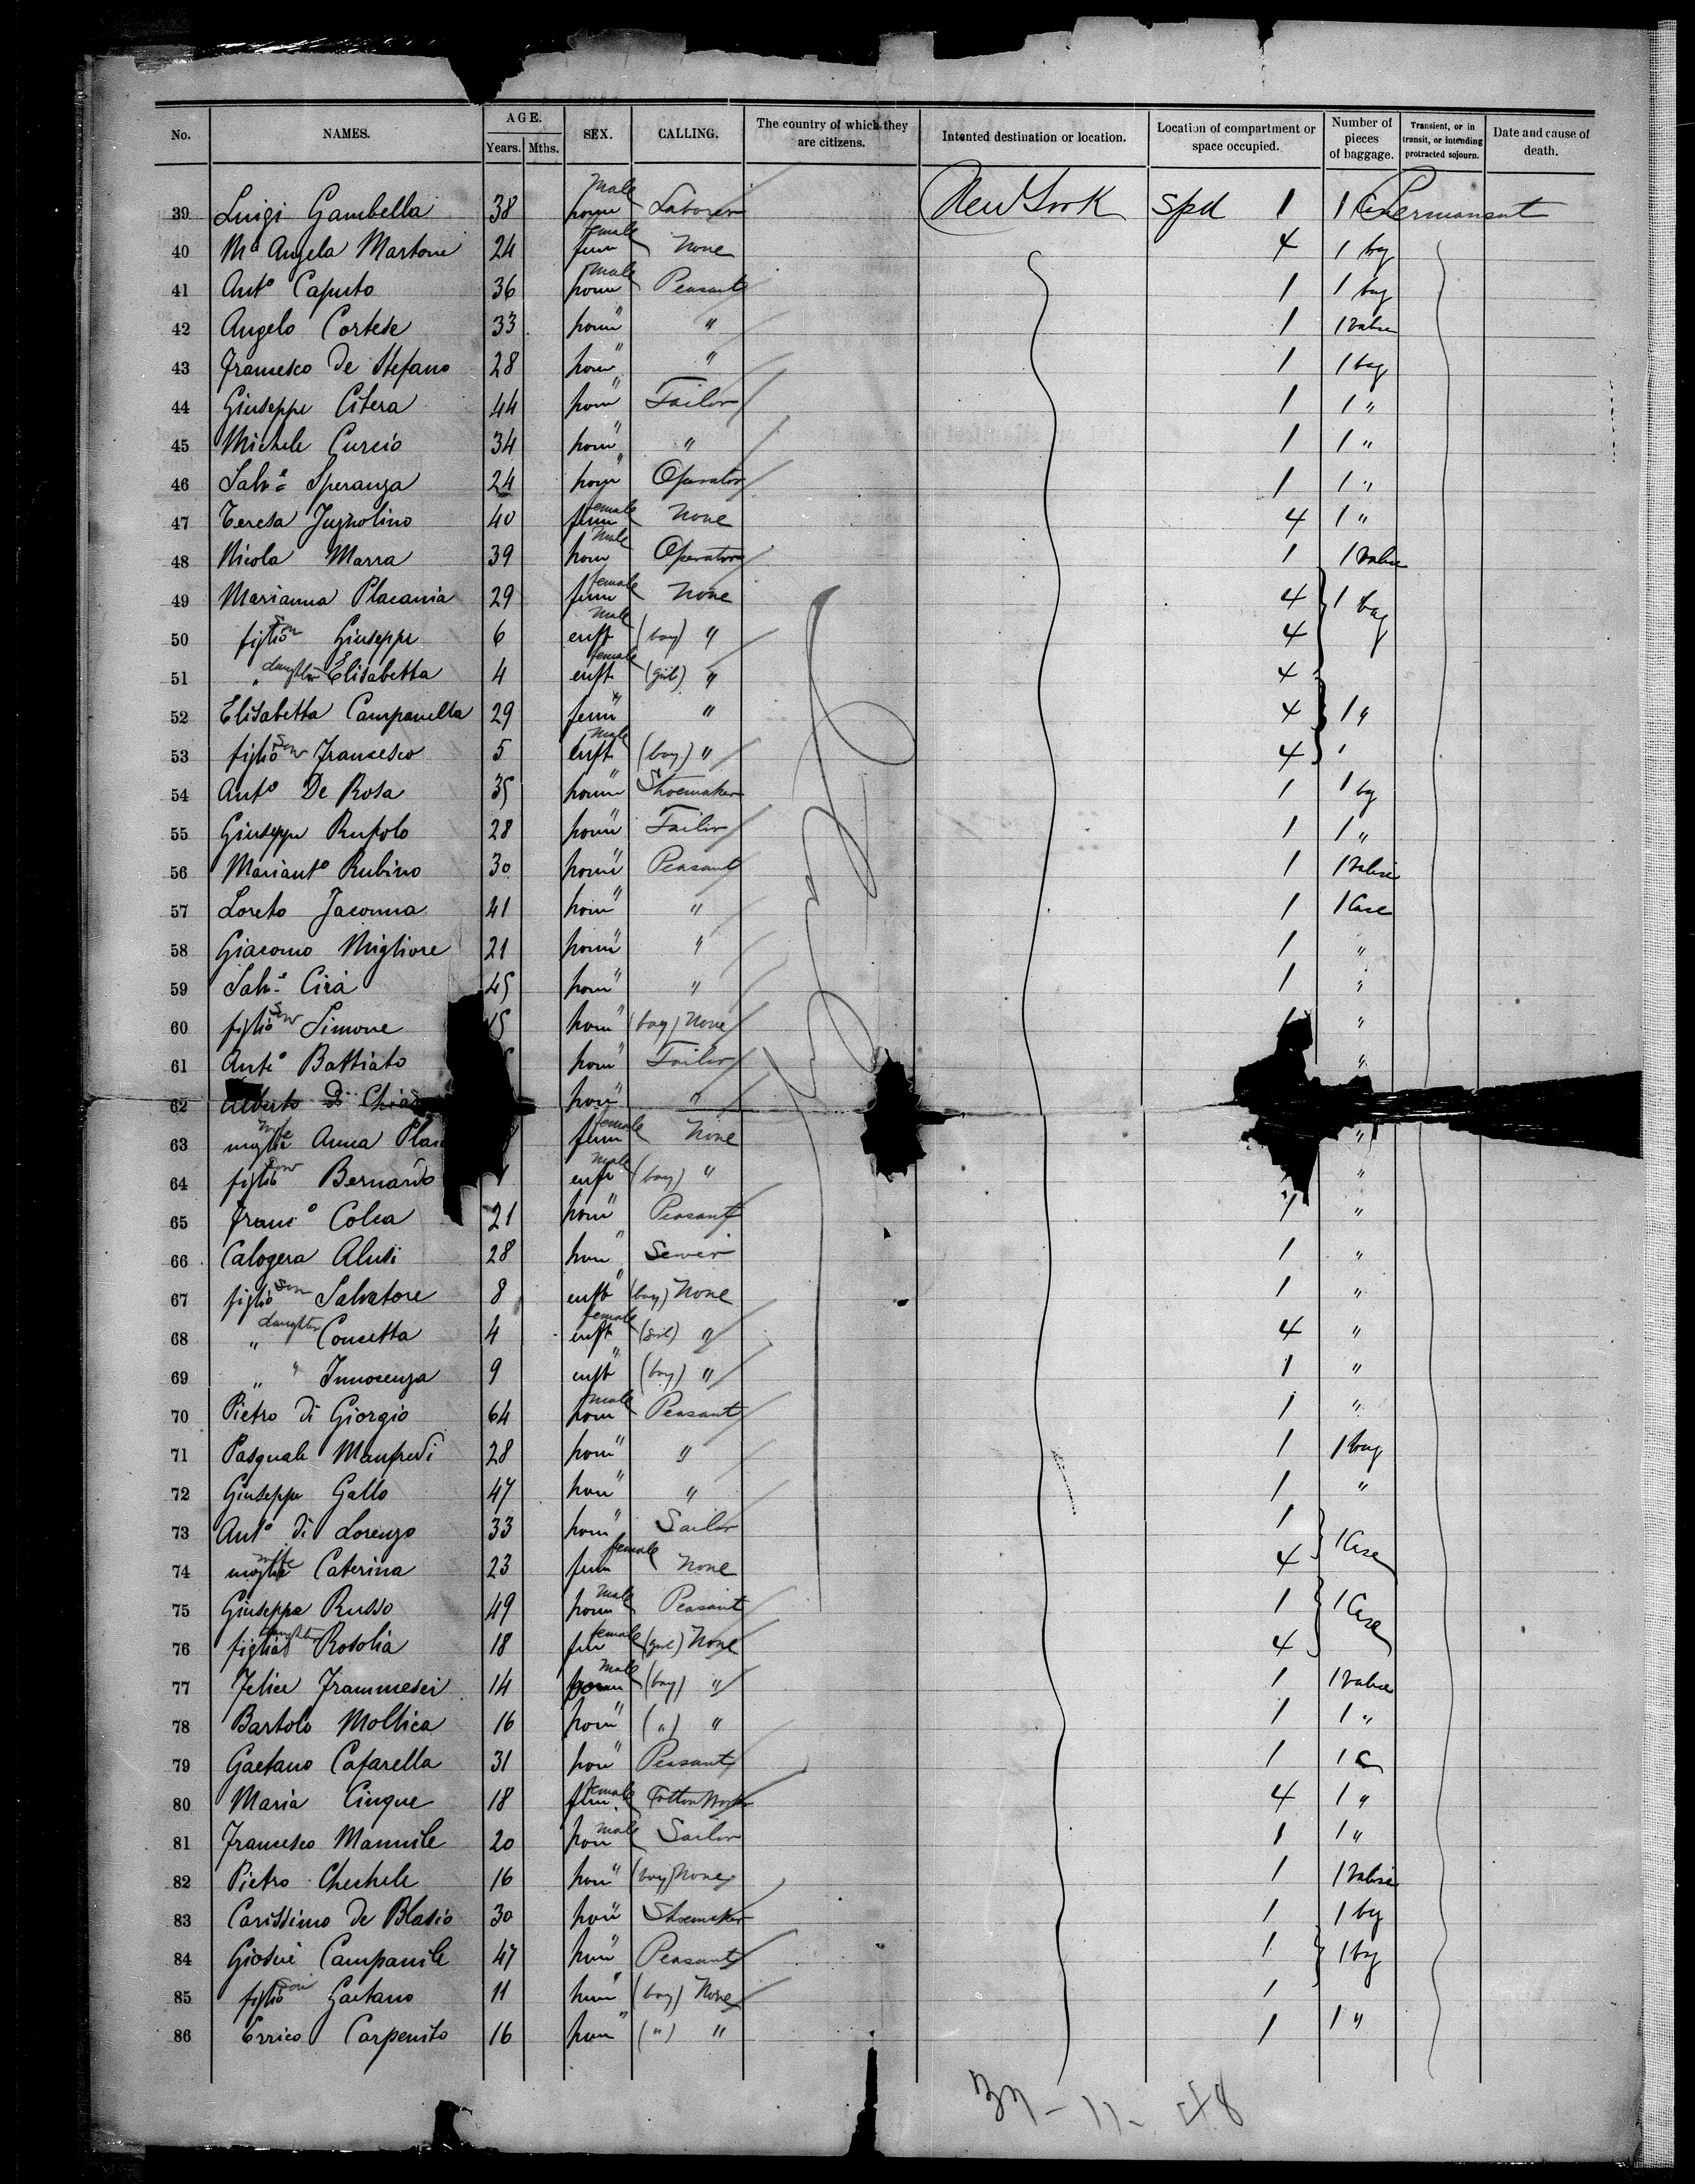 No. NAMES. AGE. Years. Mths. SEX. CALLING. The country of which they are citizens. Intented destination or location. Location of compartment or space occupied. Number of pieces of baggage. Transient, or in transit, or intending protracted sojourn. Date and cause of death.
39 Luigi Gambella 38 hom Male Laborer New York Spd 1 1 Permanent
40 Ma Angela Martone 24 fem female None 4 1 bag
41 Anto Caputo 36 hom male Peasant 1 1 bag
42 Angelo Cortese 33 hom " " 1 1 valise
43 Francesco De Stefano 28 hom " " 1 1 bag
44 Giuseppe Citera 44 hom " Tailor 1 1 "
45 Michele Curcio 34 hom " " 1 1 "
46 Salve Speranza 24 hom " Operator 1 1 "
47 Teresa 40 fem female None 4 1 "
48 Nicola Marra 39 hom Male Operator 1 1 valise
49 Marianna Placania 29 fem female None 4 1 bag
50 figlio son Giuseppe 6 enft Male (boy) " 4
51 " daughter Elisabetta 4 enft female (girl) " 4
52 Elisabetta Campanella 29 fem " " 4 1 "
53 figlio son Francesco 5 enft Male (boy) " 4
54 Anto De Rosa 35 hom " Shoemaker 1 1 bag
55 Giuseppe Rufolo 28 hom " Tailor 1 1 "
56 Marianto Rubino 30 hom " Peasant 1 1 valise
57 Loreto Jaconna 41 hom " " 1 1 Case
58 Giacomo Migliore 21 hom " " 1 "
59 Salve Cirà 45 hom " " 1 "
60 figlio son Simone 15 hom " (boy) None "
61 Anto Battiato hom " Tailor "
62 Alberto Di hom " "
63 moglie wife Anna fem female None "
64 figlio son Bernardo enft male (boy) " "
65 Franco Colca 21 hom " Peasant 1 "
66 Calogera Alusi 28 hom " Sewer 1 "
67 figlio son Salvatore 8 enft " (boy) None 1 "
68 " daughter Concetta 4 enft female (girl) " 4 "
69 " " Innocenza 9 enft " (boy) " 1 "
70 Pietro di Giorgio 64 hom male Peasant 1 "
71 Pasquale Manfredi 28 hom " " 1 1 bag
72 Giuseppe Gallo 47 hom " " 1 "
73 Anto di Lorenzo 33 hom " Sailor 1 1 Case
74 moglie wife Caterina 23 fem female None 4
75 Giuseppe Russo 49 hom Male Peasant 1 1 Case
76 figlia daughter Rosolia 18 fem female (girl) None 4
77 Felice 14 hom Male (boy) " 1 1 valise
78 Bartolo Mollica 16 hom " (") " 1 1 "
79 Gaetano Cafarella 31 hom " Peasant 1 1 C
80 Maria Cinque 18 fem female Cotton 4 1 "
81 Francesco Mannile 20 hom male Sailor 1 1 "
82 Pietro Chechele 16 hom " (boy) None 1 1 valise
83 Carissimo de Blasio 30 hom " Shoemaker 1 1 bag
84 Giosue Campanile 47 hom " Peasant 1 1 bag
85 figlio son Gaetano 11 hom " (boy) None 1
86 Errico Carpenito 16 hom " (") " 1 1 "
37 - 11 - 48